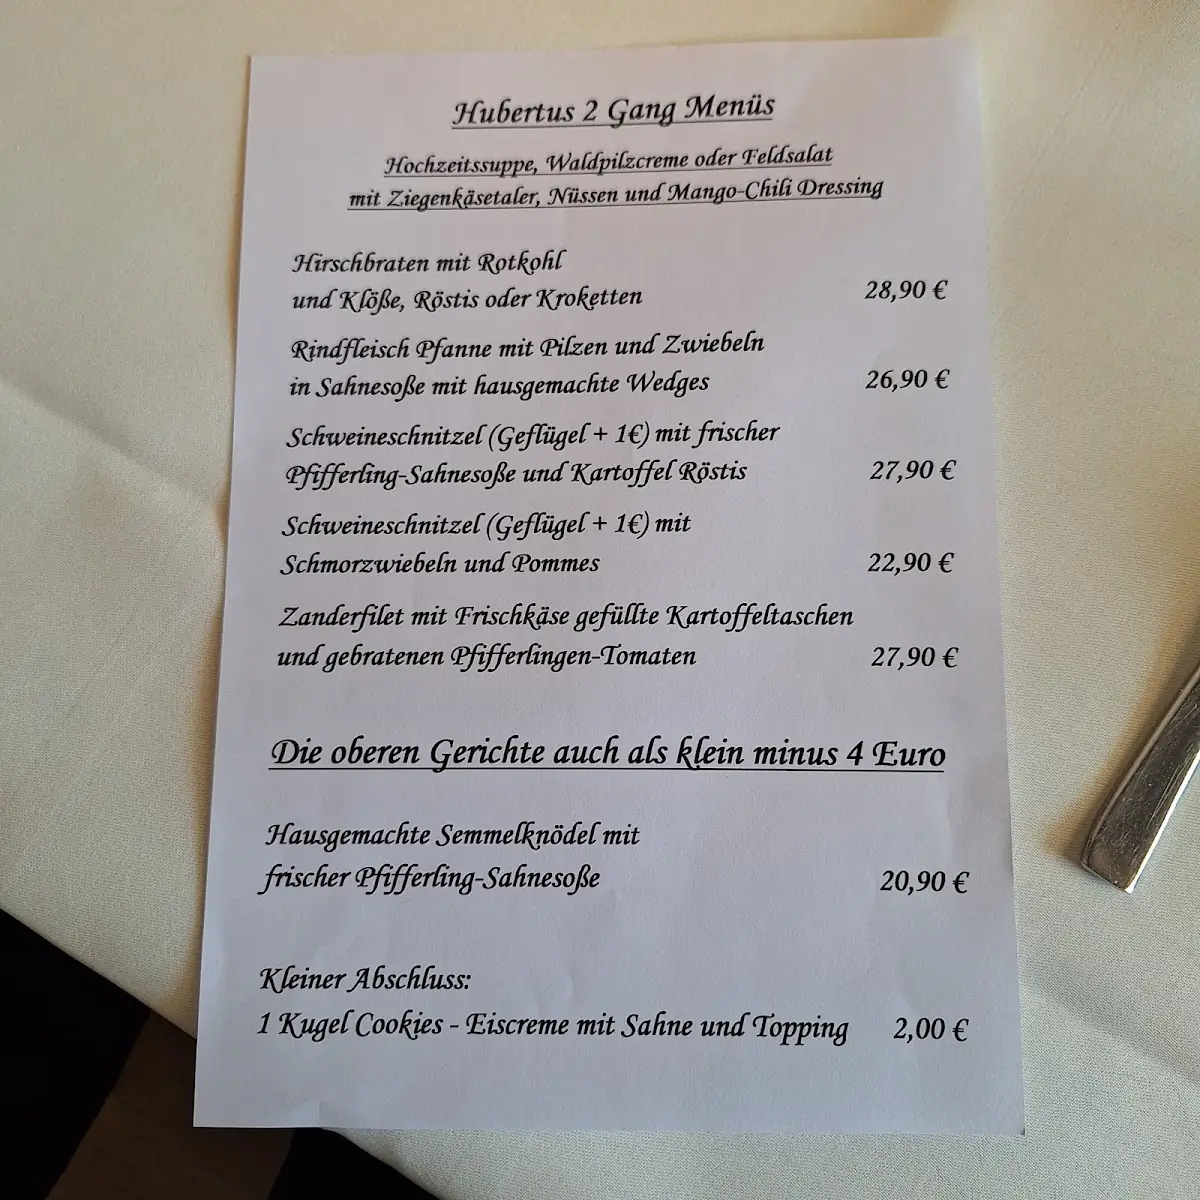 Hubertus 2 Gang Menüs
Hochzeitssuppe, Waldpilzcreme oder Feldsalat
mit Ziegenkäsetaler, Nüssen und Mango-Chili Dressing
Hirschbraten mit Rotkohl
und Klöße, Röstis oder Kroketten 28,90 €
Rindfleisch Pfanne mit Pilzen und Zwiebeln
in Sahnesoße mit hausgemachte Wedges 26,90 €
Schweineschnitzel (Geflügel + 1€) mit frischer
Pfifferling-Sahnesoße und Kartoffel Röstis 27,90 €
Schweineschnitzel (Geflügel + 1€) mit
Schmorzwiebeln und Pommes 22,90 €
Zanderfilet mit Frischkäse gefüllte Kartoffeltaschen
und gebratenen Pfifferlingen-Tomaten 27,90 €
Die oberen Gerichte auch als klein minus 4 Euro
Hausgemachte Semmelknödel mit
frischer Pfifferling-Sahnesoße 20,90 €
Kleiner Abschluss:
1 Kugel Cookies - Eiscreme mit Sahne und Topping 2,00 €